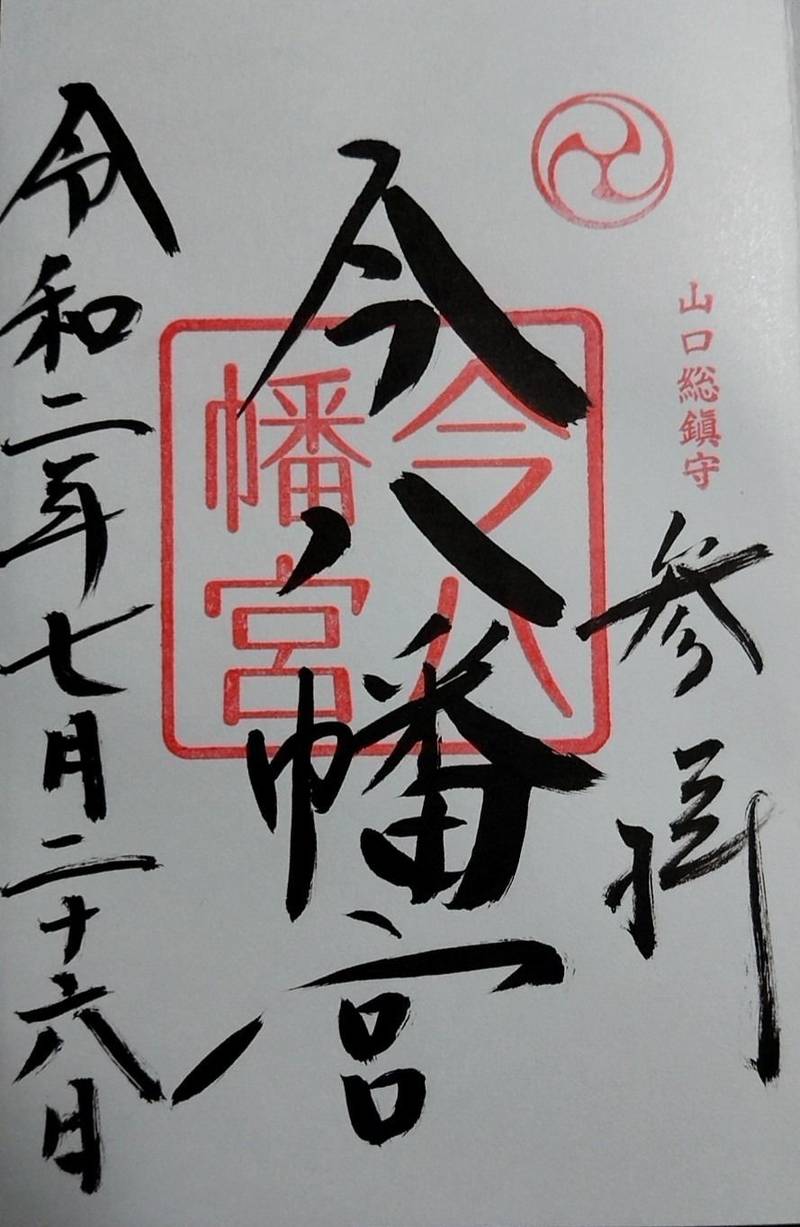 山口総鎮守
参拝
今八幡宮
今八
幡宮
令和二年七月二十六日